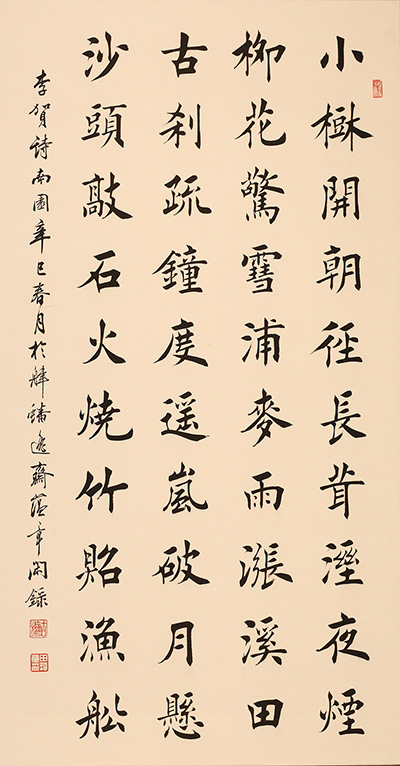 小樹開朝徑長茸溼夜煙
柳花驚雪浦麥雨漲溪田
古刹疏鐘度遥嵐破月懸
沙頭敲石火燒竹漁舩
李賀詩南園辛巳春月於逸齋蘊章閑錄